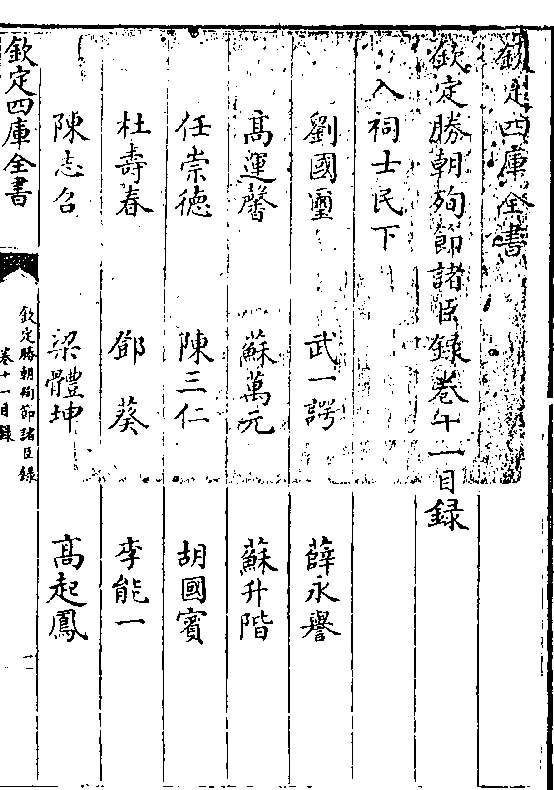 欽定四庫全書
欽定勝朝殉節諸臣錄卷十一目録
入祠士民下
劉國璽　武一諤　薛永譽
髙運馨　蘇萬元　蘇升階
任崇德　陳三仁　胡國賓
杜壽春　鄧葵　李能一
陳志名　梁體坤　髙起鳳
欽定四庫全書
欽定勝朝殉節諸臣錄
卷十一目録
一